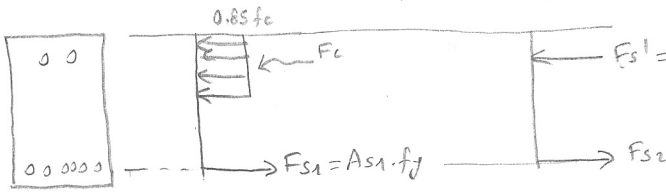 0.85 fc
Fc
Fs' =
Fs1 = As1 . fy
Fs2